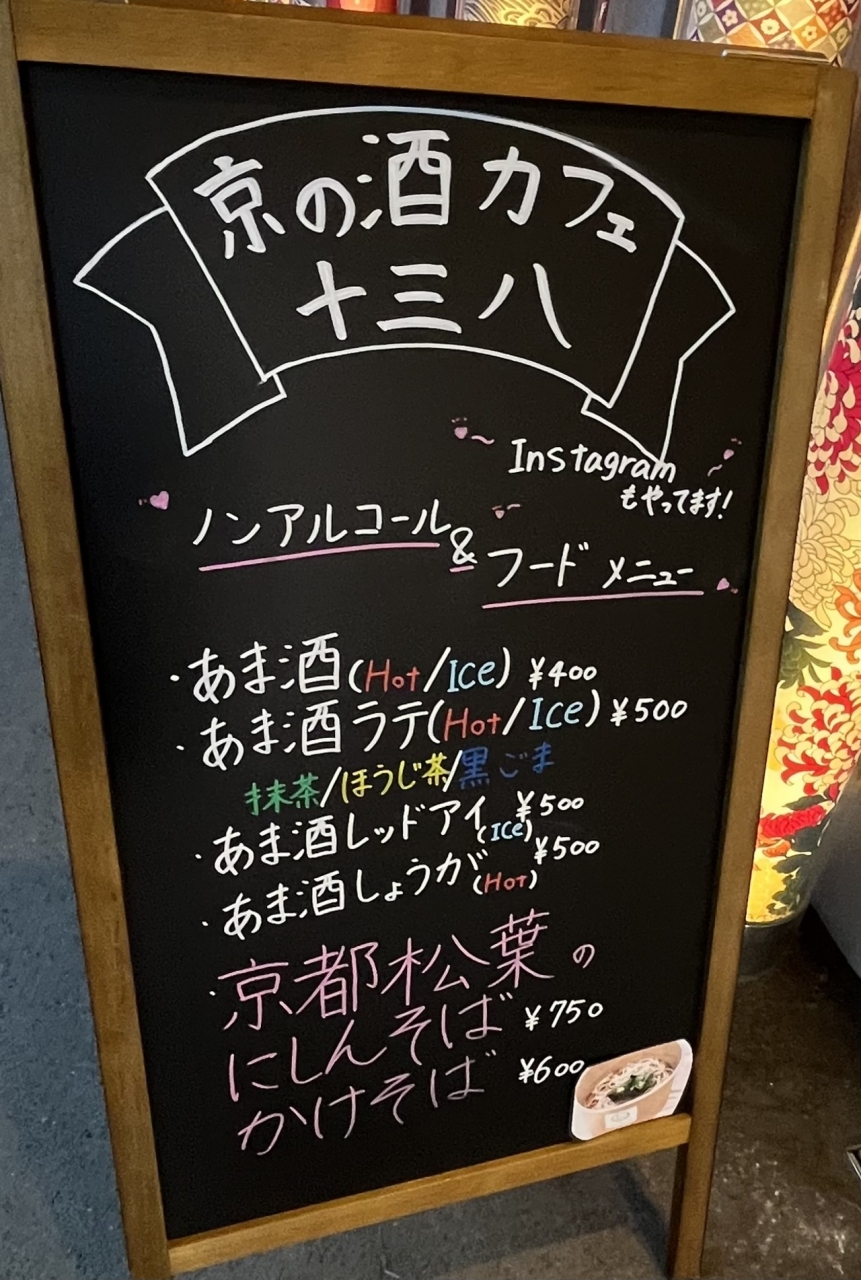 京の酒カフェ
十三八
Instagram
もやってます!
ノンアルコール
&
フードメニュー
・あま酒(Hot/Ice) ¥400
・あま酒ラテ(Hot/Ice) ¥500
抹茶/ほうじ茶/黒ごま
・あま酒レッドアイ(ICe) ¥500
・あま酒しょうが(Hot) ¥500
・京都松葉の
にしんそば ¥750
かけそば ¥600